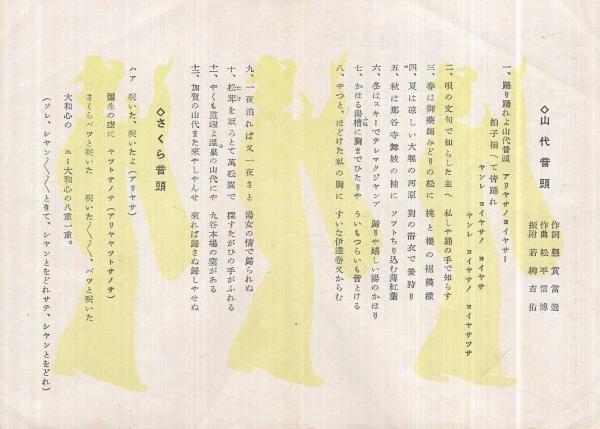 ◇山代音頭
作詞 懸賞當選
作曲 松平信博
振附 若柳吉佑
一、踊り踊れよ山代音頭 アリヤサノヨイヤサー
拍子揃へて皆踊れ
ヤンレ ヨイヤサノ ヨイヤサ
ヤンレ ヨイヤサノ ヨイヤサツサ
二、唄の文句で知らした主へ 私しや踊の手で知らす
三、春は御薬師みどりの松に 桃と櫻の裙模様
四、夏は涼しい大堰の河原 對の浴衣で螢狩り
五、秋は那谷寺舞妓の袖に ソツトちり込む薄紅葉
六、冬はスキーでテレマクジヤンプ 歸りや嬉しい湯のかほり
七、かほる湯槽に胸までひたりや ういもつらいも皆とける
八、やつと、ほどけた私の胸に すいな伊達巻又からむ
九、一夜泊れば又一夜さと 湯女の情で歸られぬ
十、松茸を取ろとて萬松園で 探すたがひの手がふれる
十一、やくも道理よ温泉の山代にや 九谷本場の窯がある
十二、加賀の山代また來やしやんせ 來れば歸さぬ歸しやせぬ
◇さくら音頭
ハア 咲いた、咲いたよ（アリヤサ）
彌生の空に ヤツトサノサ（アリヤヤツトサノサ）
さくらパツと咲いた 咲いた〳〵、パツと咲いた
大和心の エー大和心の八重一重。
（ソレ、シヤン〳〵〳〵ときて、シヤンとをどれサテ、シヤンとをどれ）